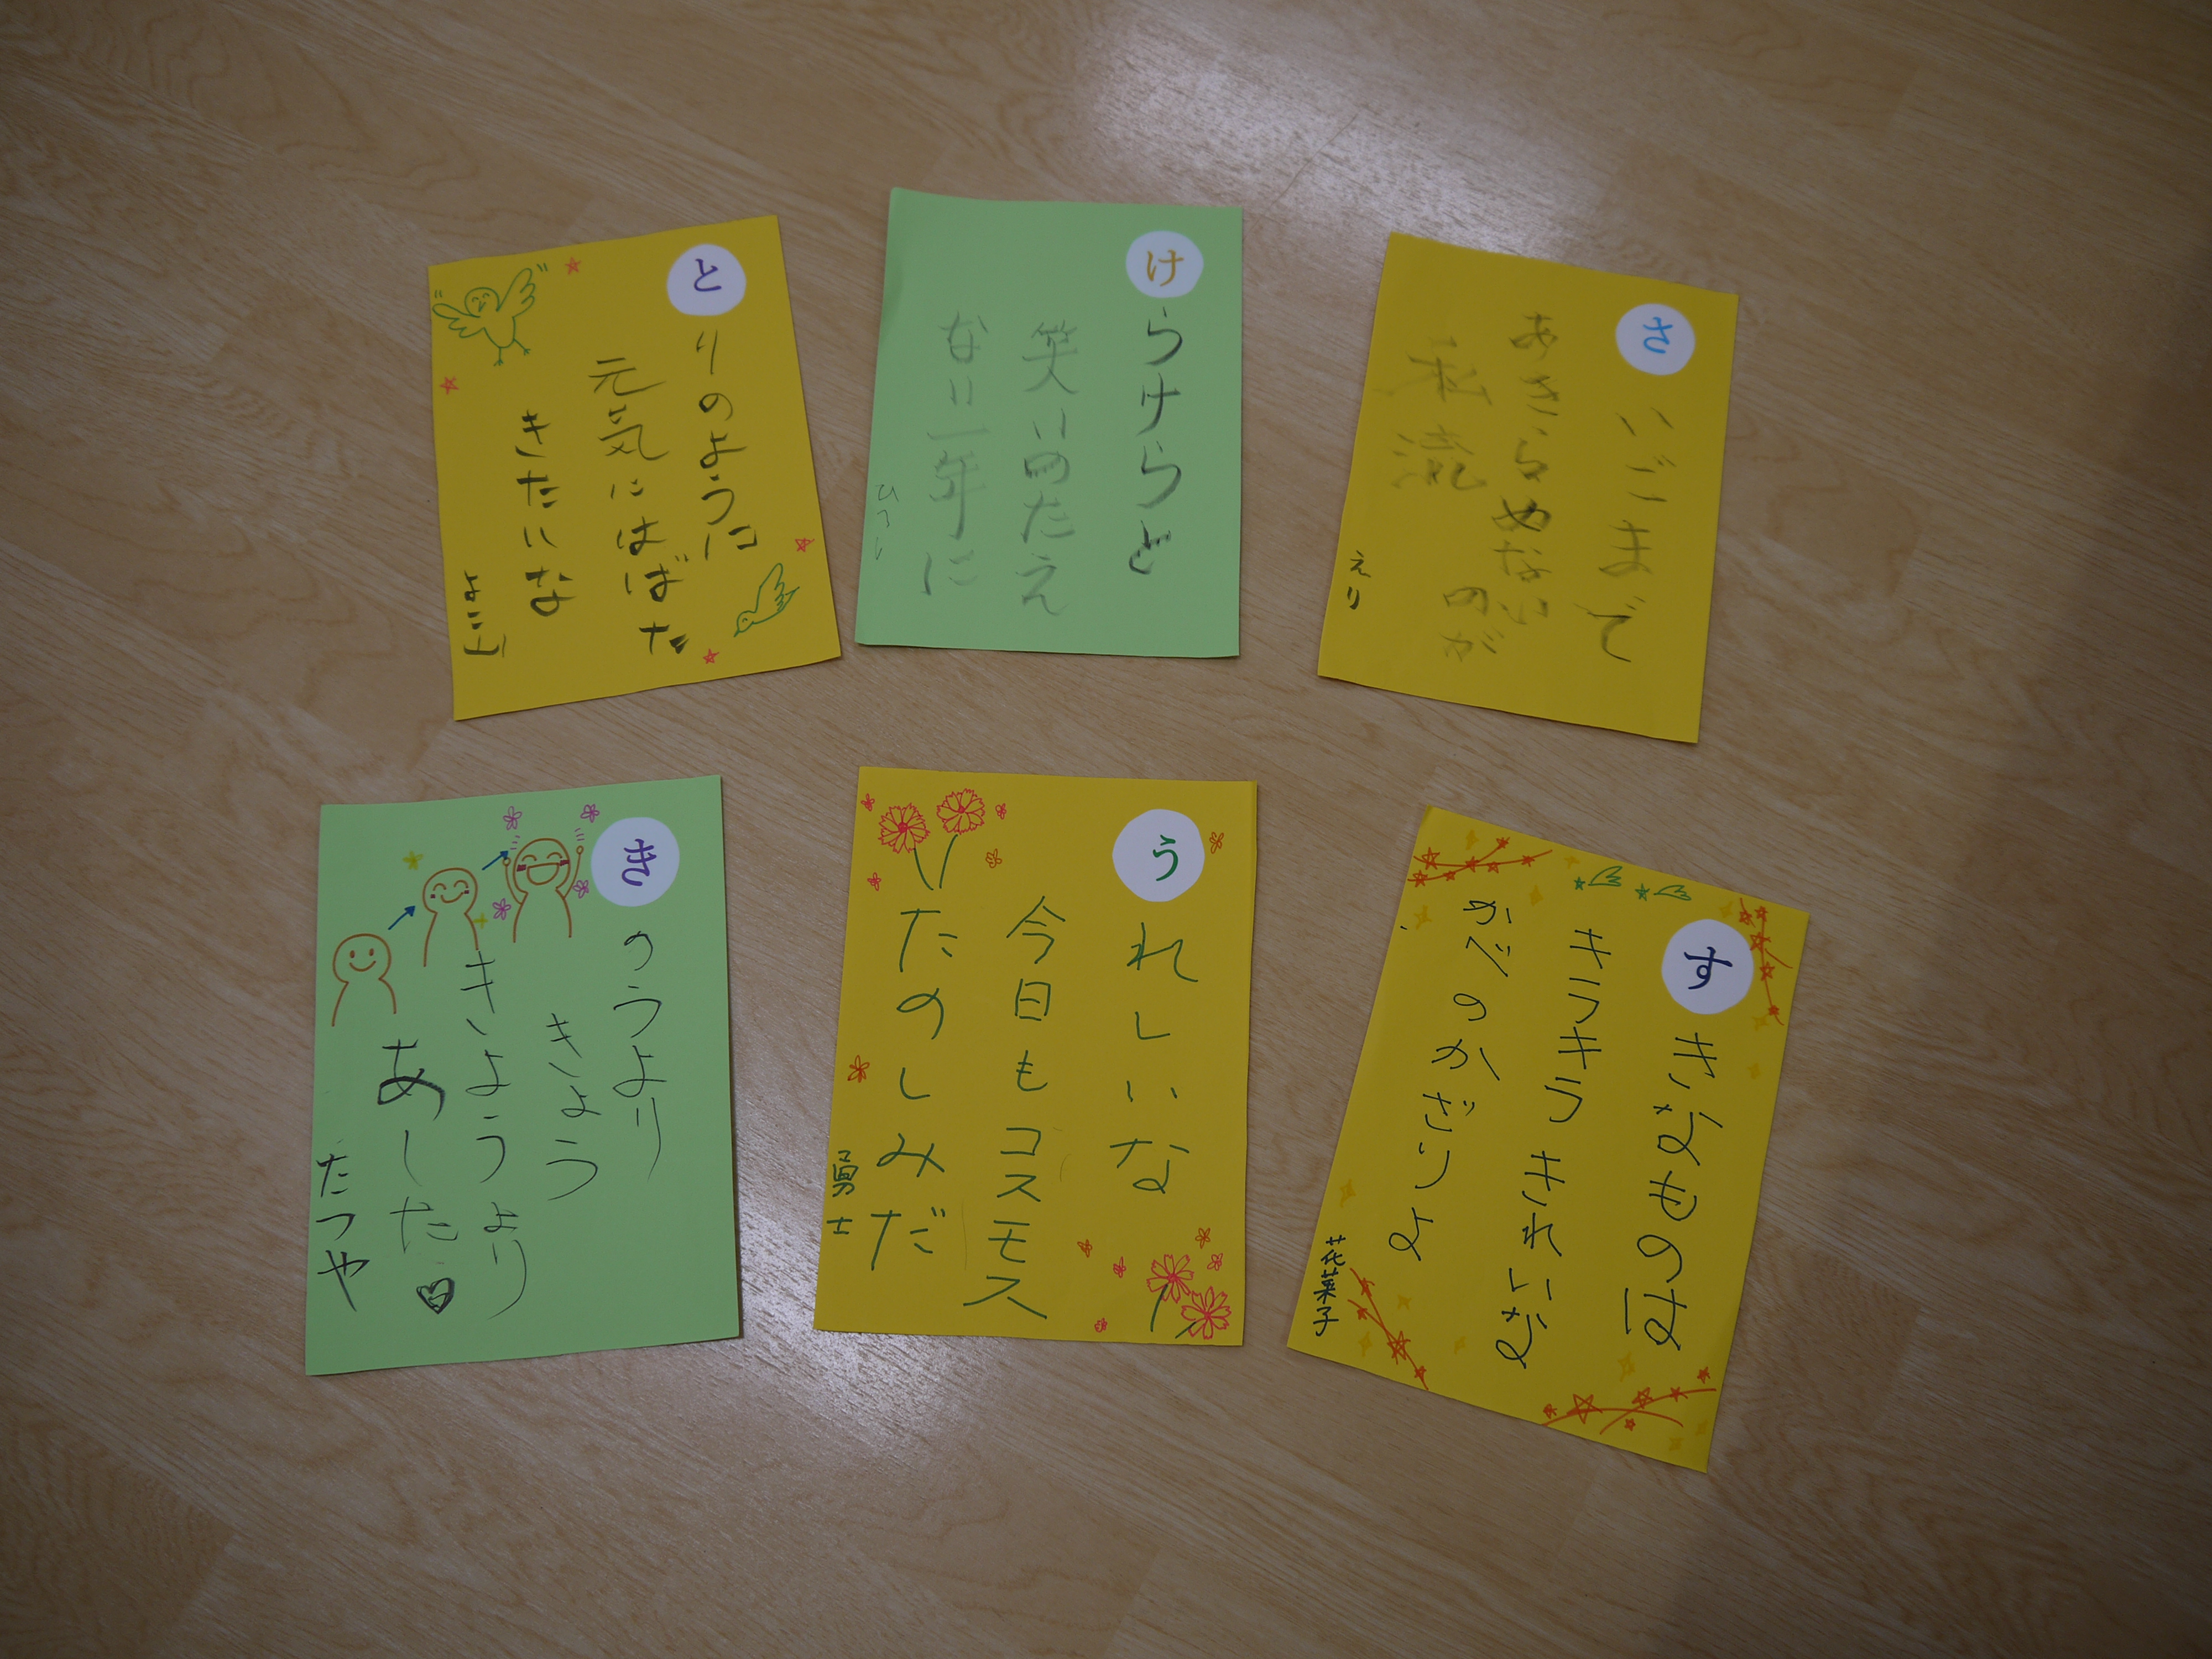 とりのように
元気にはばた
きたいな
よこ山
けらけらと
笑いのたえ
ない一年に
さいごまで
あきらめない
のが
私流
えり
きのうより
きょう
きょうより
あした♡
たつや
うれしいな
今日もコスモス
たのしみだ
勇士
すきなものは
キラキラきれいな
かべのかざりよ
花菜子